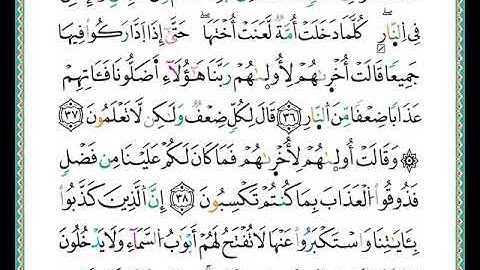 فِى اِ۬لنّ۪ارِۖ كُلَّمَا دَخَلَتْ أُمَّةٞ لَّعَنَتْ أُخْتَهَاۖ حَتَّىٰٓ إِذَا اَ۪دَّارَكُواْ فِيهَا
جَمِيعٗا قَالَتْ أُخْر۪ىٰهُمْ لِأُولَىٰهُمْ رَبَّنَا هَٰٓؤُلَآءِ أَضَلُّونَا فَـَٔاتِهِمْ
عَذَابٗا ضِعْفٗا مِّنَ اَ۬لنّ۪ارِ ۝٣٦ قَالَ لِكُلّٖ ضِعْفٞ وَلَٰكِن لَّا تَعْلَمُونَ ۝٣٧
۞ وَقَالَتْ أُولَىٰهُمْ لِأُخْر۪ىٰهُمْ فَمَا كَانَ لَكُمْ عَلَيْنَا مِن فَضْلٖ
فَذُوقُواْ اُ۬لْعَذَابَ بِمَا كُنتُمْ تَكْسِبُونَ ۝٣٨ إِنَّ اَ۬لذِينَ كَذَّبُواْ
بِـَٔايَٰتِنَا وَاسْتَكْبَرُواْ عَنْهَا لَا تُفْتَحُ لَهُمْ أَبْوَٰبُ اُ۬لسَّمَآءِ وَلَا يَدْخُلُونَ